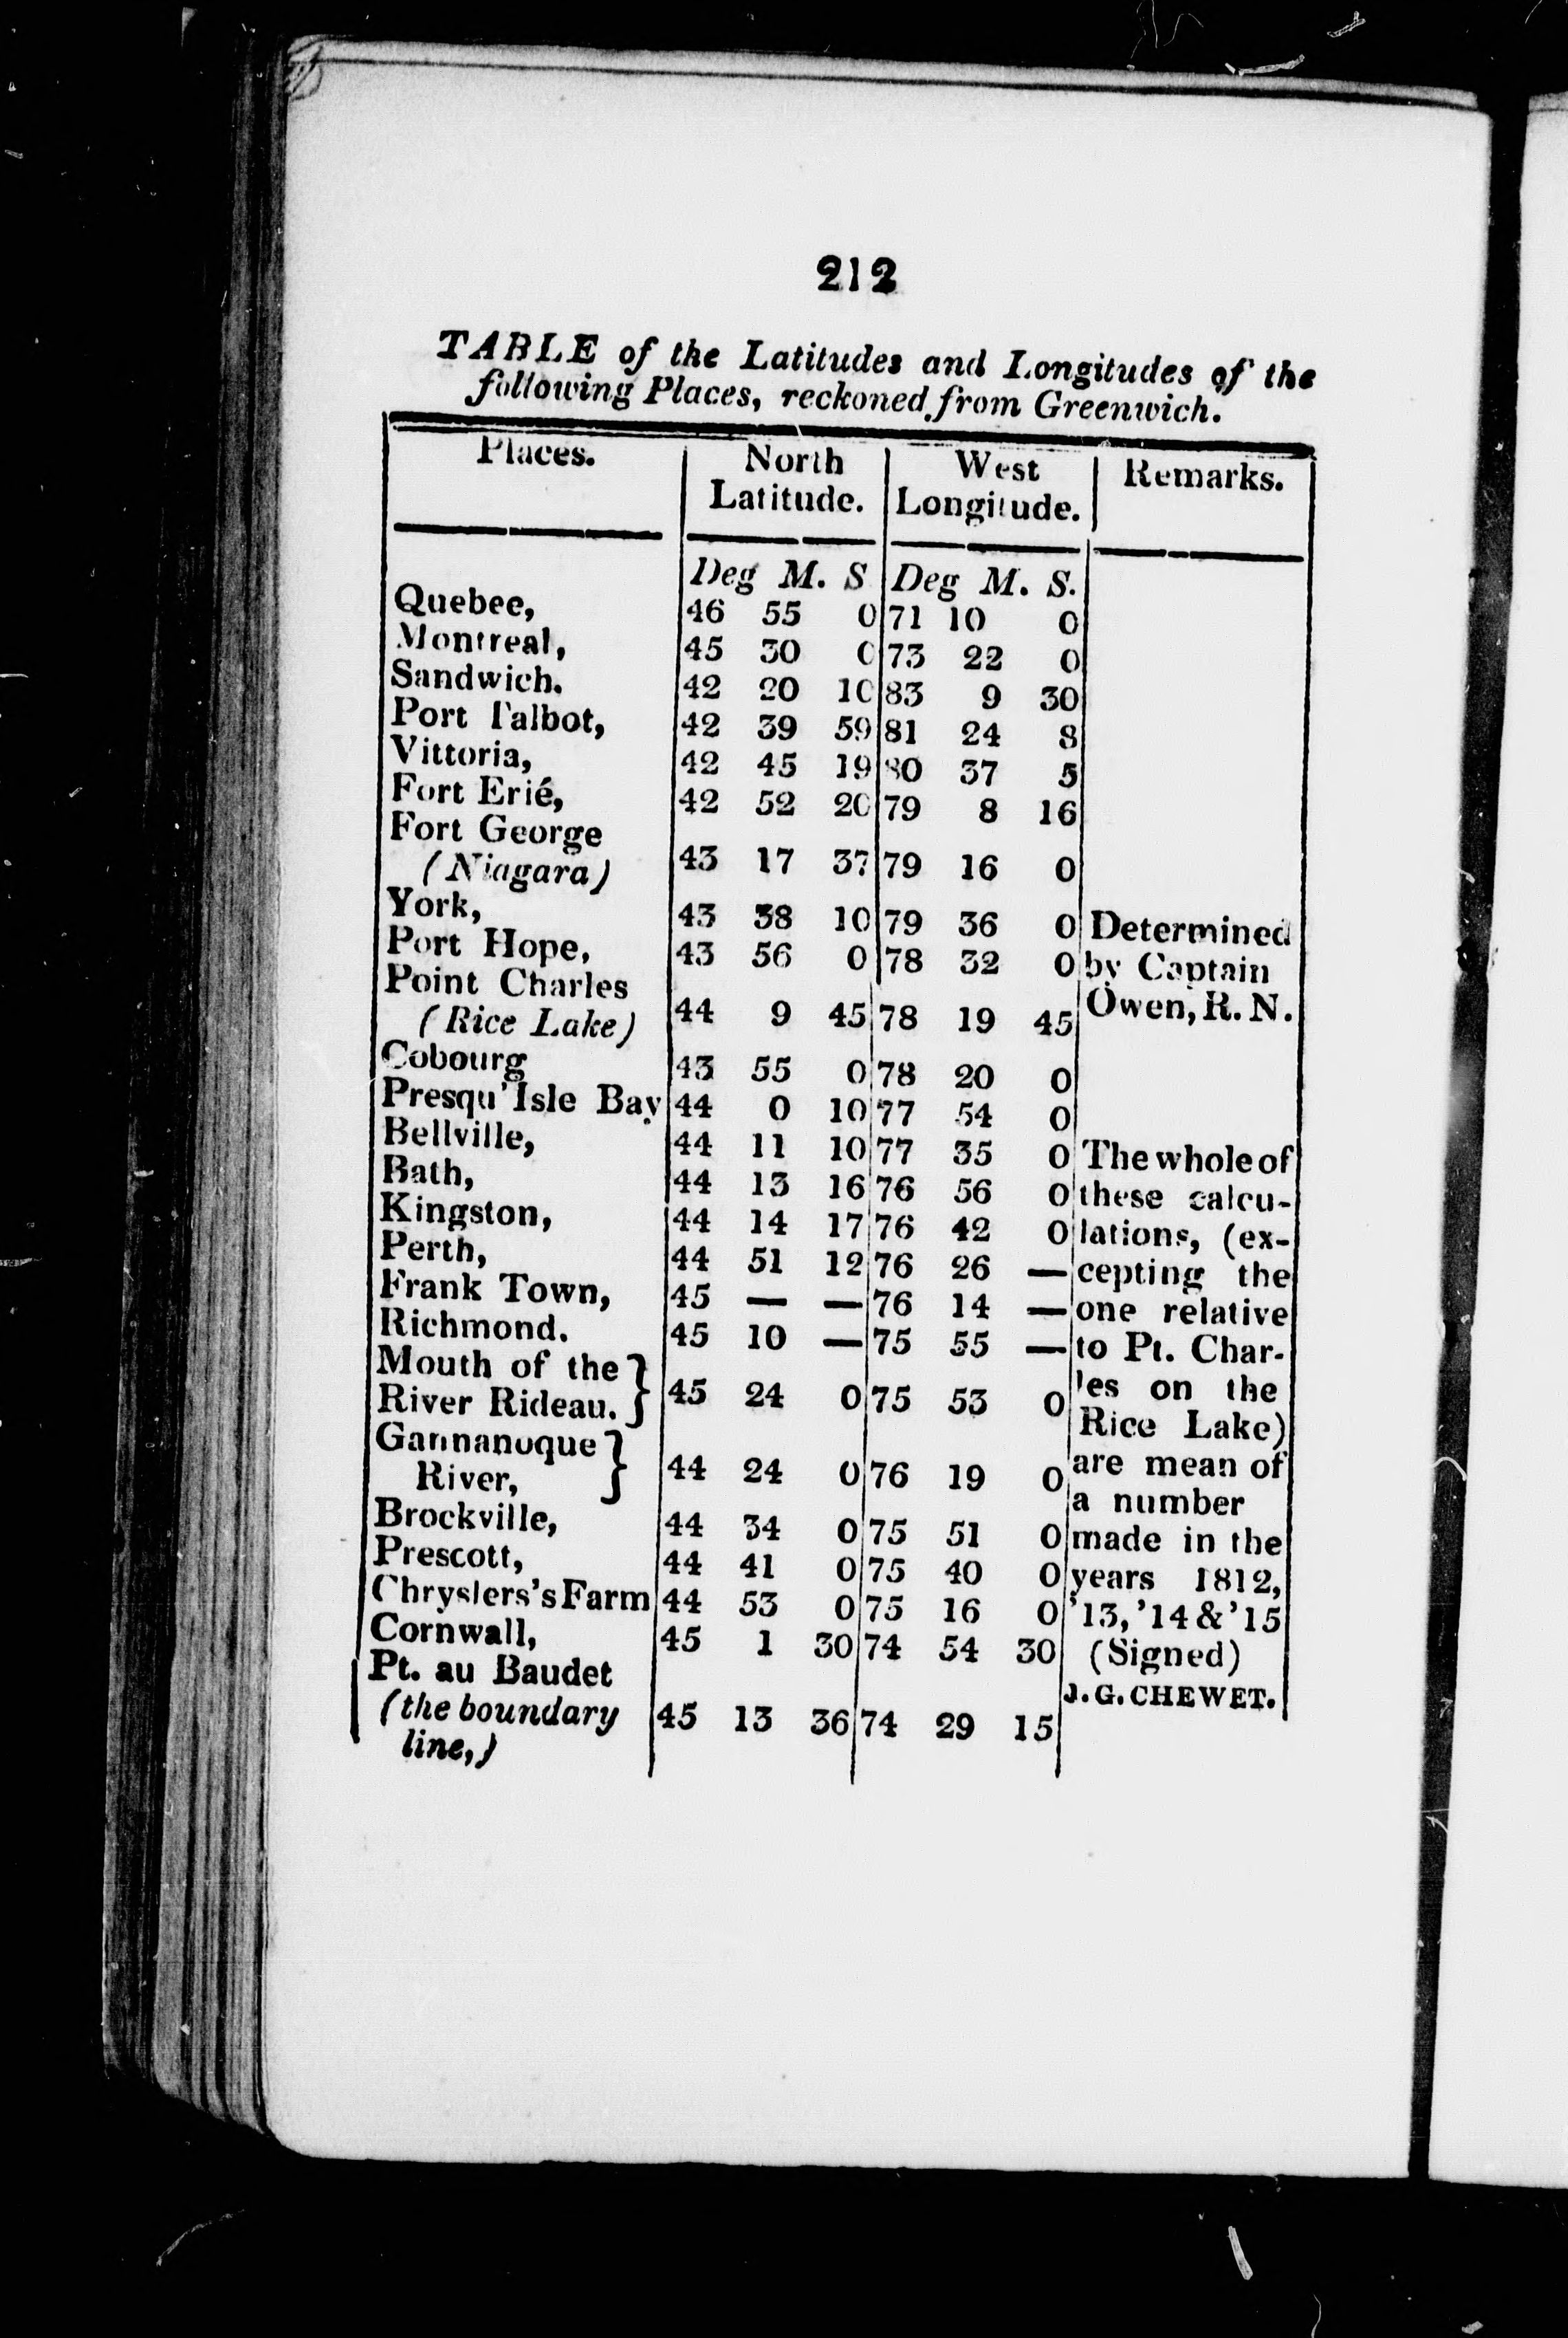 212
TABLE of the Latitudes and Longitudes of the
following Places, reckoned from Greenwich.
Places. North Latitude. West Longitude. Remarks.
Deg M. S Deg M. S.
Quebec, 46 55 0 71 10 0
Montreal, 45 30 0 73 22 0
Sandwich. 42 20 10 83 9 30
Port Talbot, 42 39 59 81 24 8
Vittoria, 42 45 19 80 37 5
Fort Erié, 42 52 20 79 8 16
Fort George
(Niagara) 43 17 37 79 16 0
York, 43 38 10 79 36 0 Determined
Port Hope, 43 56 0 78 32 0 by Captain
Point Charles Owen, R. N.
(Rice Lake) 44 9 45 78 19 45
Cobourg 43 55 0 78 20 0
Presqu' Isle Bay 44 0 10 77 54 0
Bellville, 44 11 10 77 35 0 The whole of
Bath, 44 13 16 76 56 0 these calcu-
Kingston, 44 14 17 76 42 0 lations, (ex-
Perth, 44 51 12 76 26 — cepting the
Frank Town, 45 — — 76 14 — one relative
Richmond. 45 10 — 75 55 — to Pt. Char-
Mouth of the les on the
River Rideau. } 45 24 0 75 53 0 Rice Lake)
Gannanoque are mean of
River, } 44 24 0 76 19 0 a number
Brockville, 44 34 0 75 51 0 made in the
Prescott, 44 41 0 75 40 0 years 1812,
Chryslers's Farm 44 53 0 75 16 0 '13, '14 & '15
Cornwall, 45 1 30 74 54 30 (Signed)
Pt. au Baudet J. G. CHEWET.
(the boundary 45 13 36 74 29 15
line,)